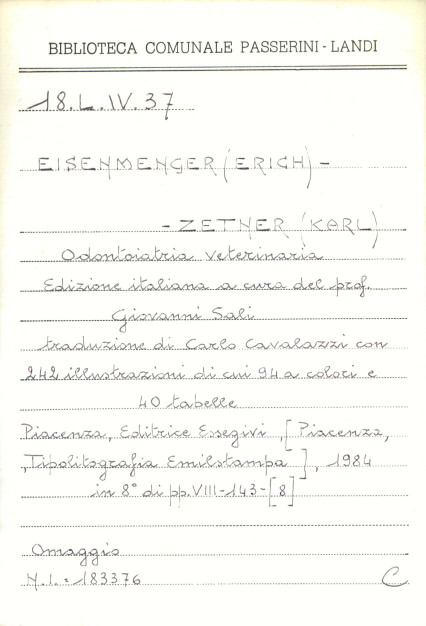 BIBLIOTECA COMUNALE PASSERINI-LANDI
18.L.IV.37
EISENMENGER (ERICH) -
- ZETNER (KARL)
Odontoiatria veterinaria
Edizione italiana a cura del prof.
Giovanni Sali
traduzione di Carlo Cavalazzi con
242 illustrazioni di cui 94 a colori e
40 tabelle
Piacenza, Editrice Essegivi, [Piacenza,
Tipolitografia Emilstampa], 1984
in 8° di pp. VIII-143-[8]
Omaggio
N.I.=183376 C